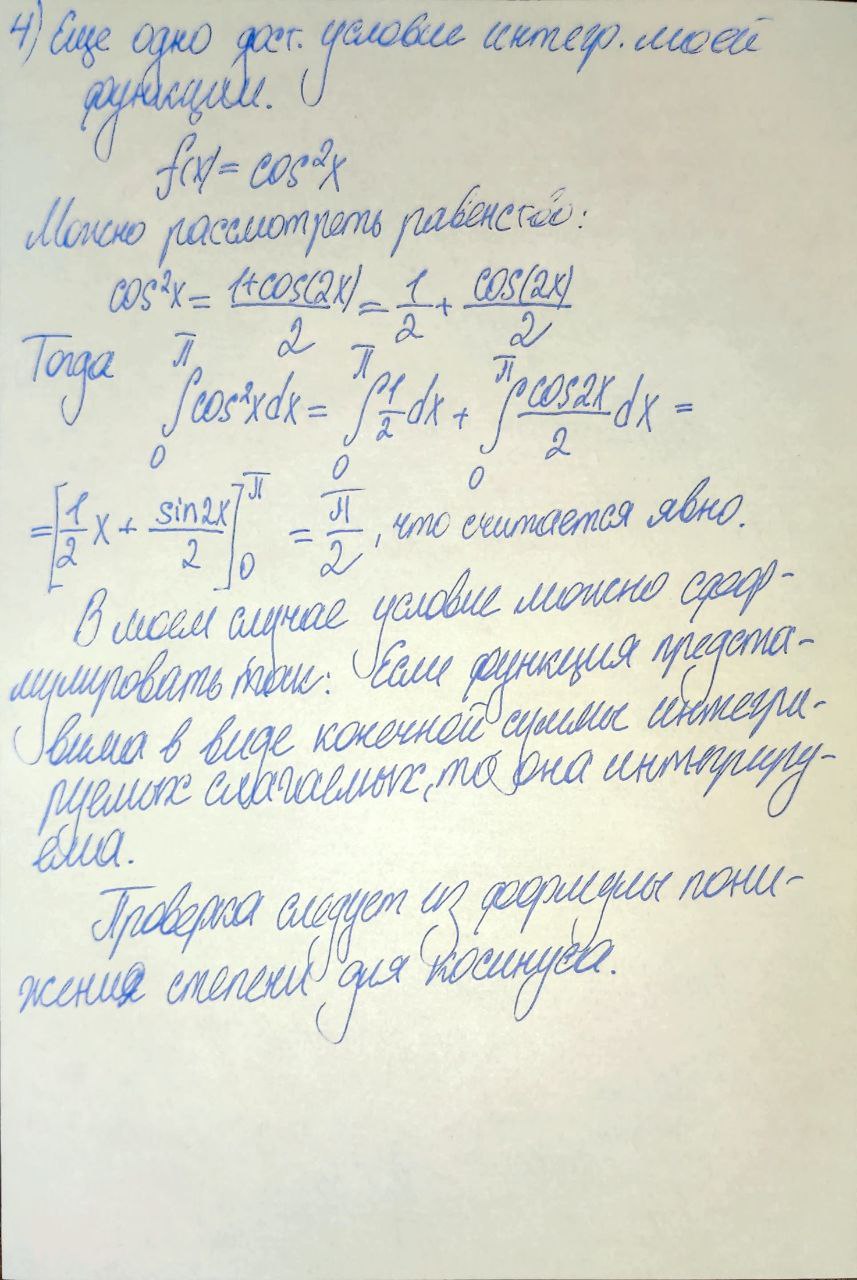 4) Еще одно дост. условие интегр. моей
функции.
f(x) = cos²x
Можно рассмотреть равенство:
cos²x = (1+cos(2x))/2 = 1/2 + cos(2x)/2
Тогда ∫₀^π cos²x dx = ∫₀^π 1/2 dx + ∫₀^π cos2x/2 dx =
= [1/2 x + sin2x/2]₀^π = π/2, что считается явно.
В моем случае условие можно сфор-
мулировать так: Если функция предста-
вима в виде конечной суммы интегри-
руемых слагаемых, то она интегрируе-
ема.
Проверка следует из формулы пони-
жения степени для косинуса.